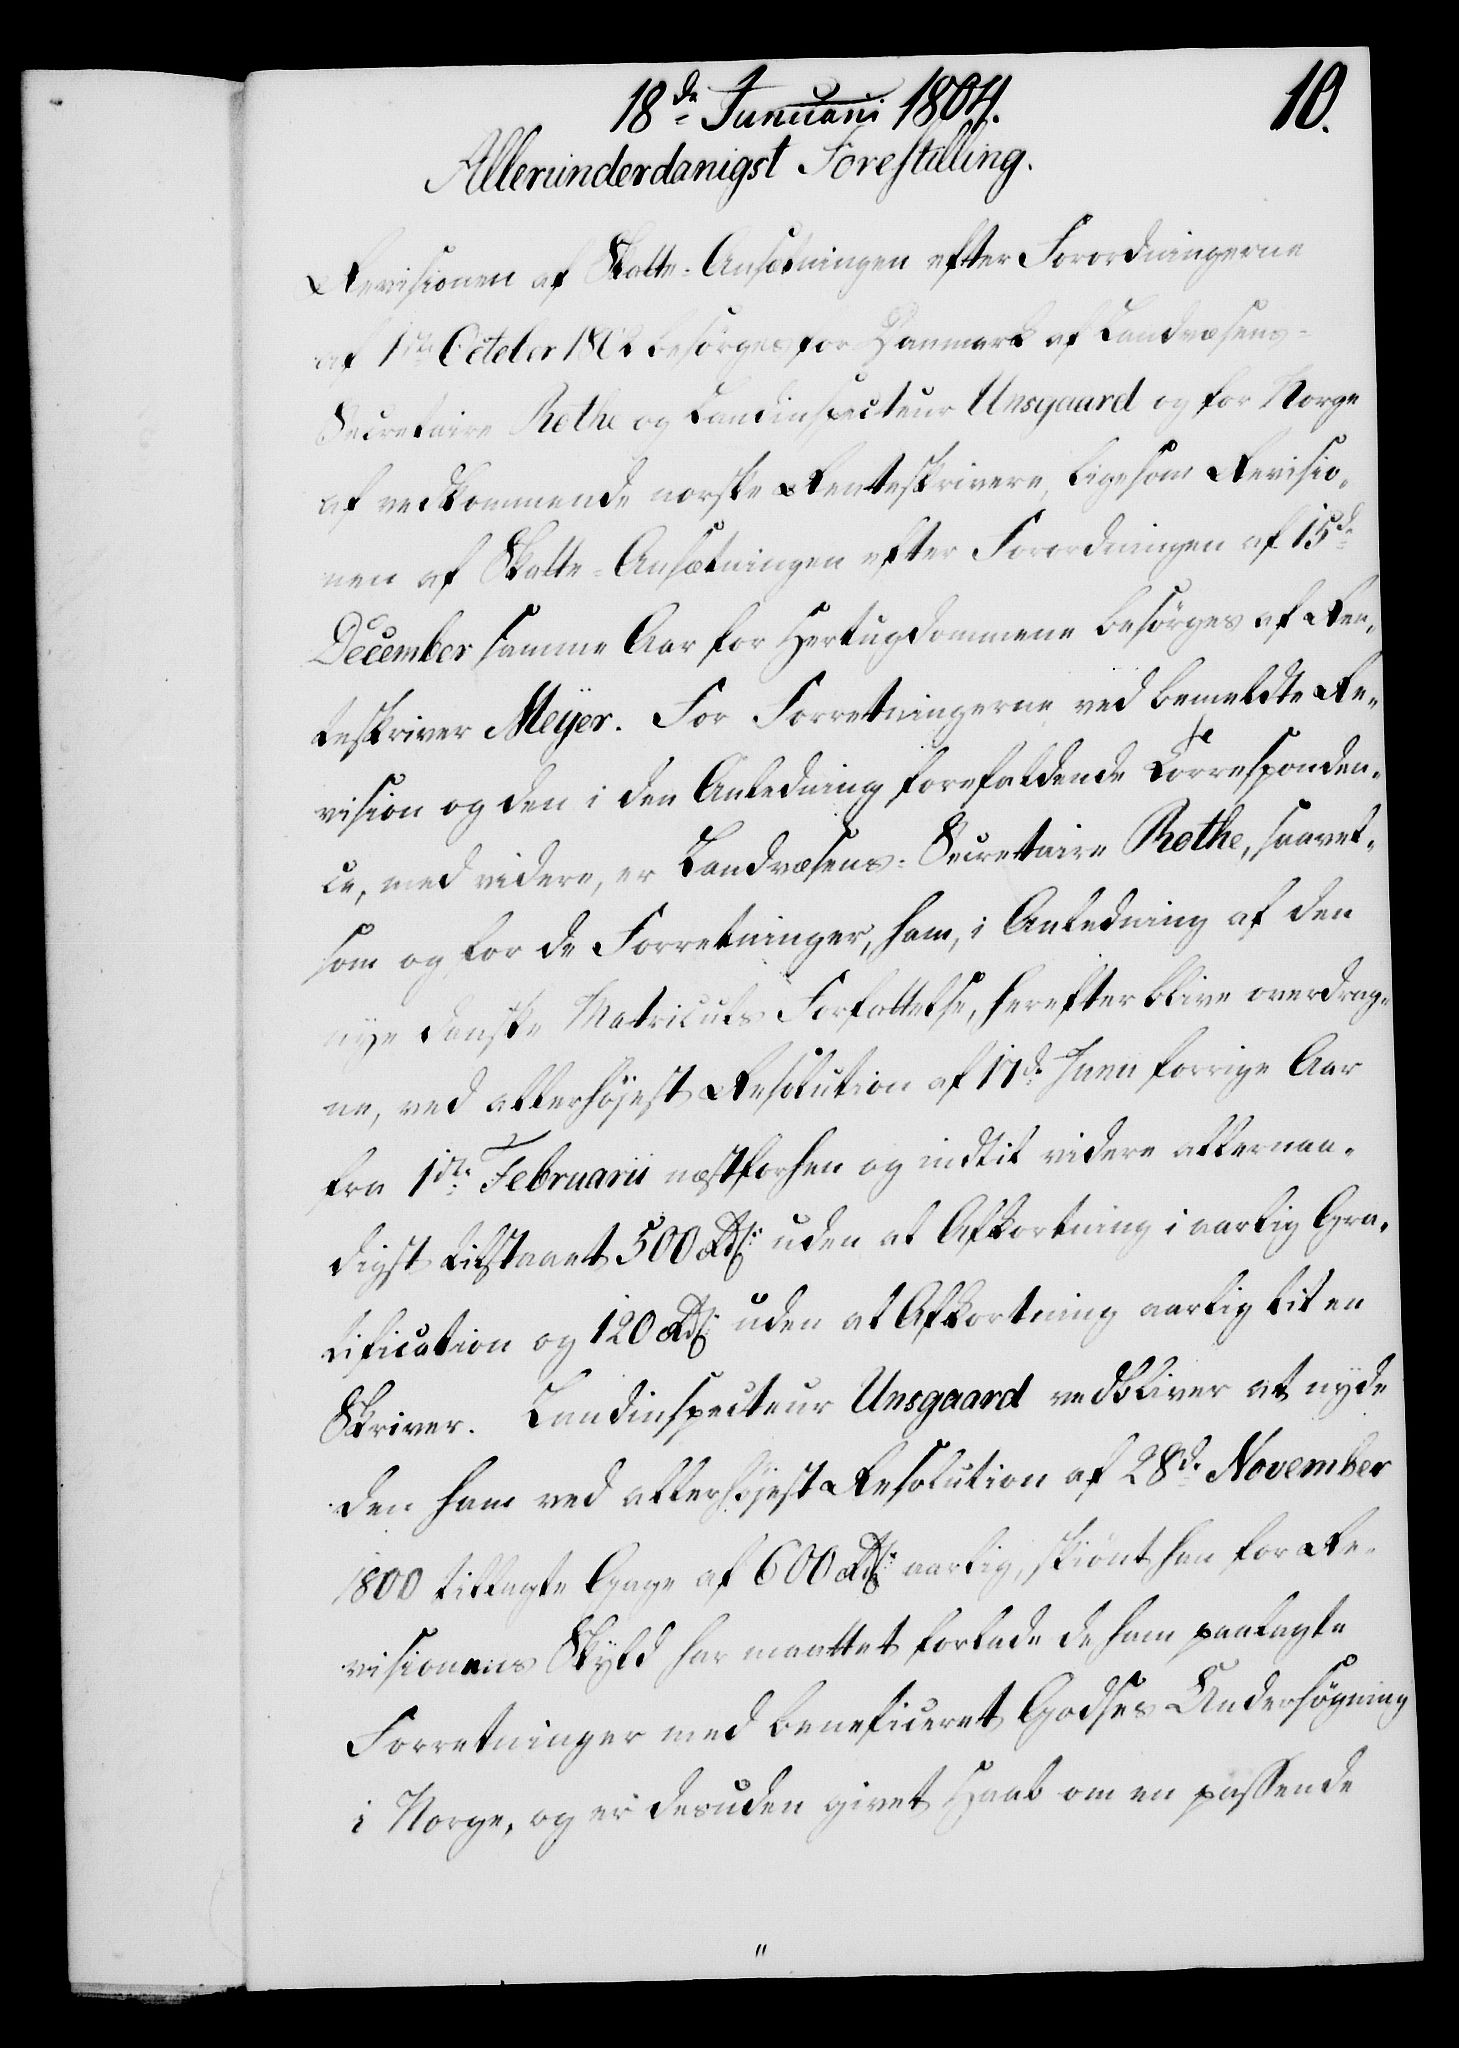 18de Januarii 1804.
10.
Allerunderdanigst Forestilling.
Revisionen af Skatte-Ansætningen efter Forordningerne
af 1ste October 1802 besørges for Danmark af Landvæsens-
Secretaire Rothe og Landinspecteur Unsgaard og for Norge
af vedkommende norske Renteskrivere, ligesom Revisio-
nen af Skatte-Ansætningen efter Forordningen af 15de
December samme Aar for Hertugdommene besørges af Ren-
teskriver Meÿer. For Forretningerne ved bemeldte Re-
vision og den i den Anledning forefaldende Corresponden-
ce, med videre, er Landvæsens-Secretaire Rothe, saavel-
som og for de Forretninger, ham, i Anledning af den
nye danske Matriculs Forfattelse, herefter blive overdrag-
ne, ved allerhøjest Resolution af 17de Junii forrige Aar
fra 1ste Februarii næstforhen og indtil videre allernaa-
digst tilstaaet 500 Rdr: uden al Afkortning i aarlig Gra-
tification og 120 Rdr: uden al Afkortning aarlig til en
Skriver. Landinspecteur Unsgaard vedbliver at nyde
den ham ved allerhøjest Resolution af 28de November
1800 tillagte Gage af 600 Rdr: aarlig, skiønt han for Re-
visionens Skyld har maattet forlade de ham paalagte
Forretninger med beneficeret Godses Undersøgning
i Norge, og er desuden givet Haab om en passende
"